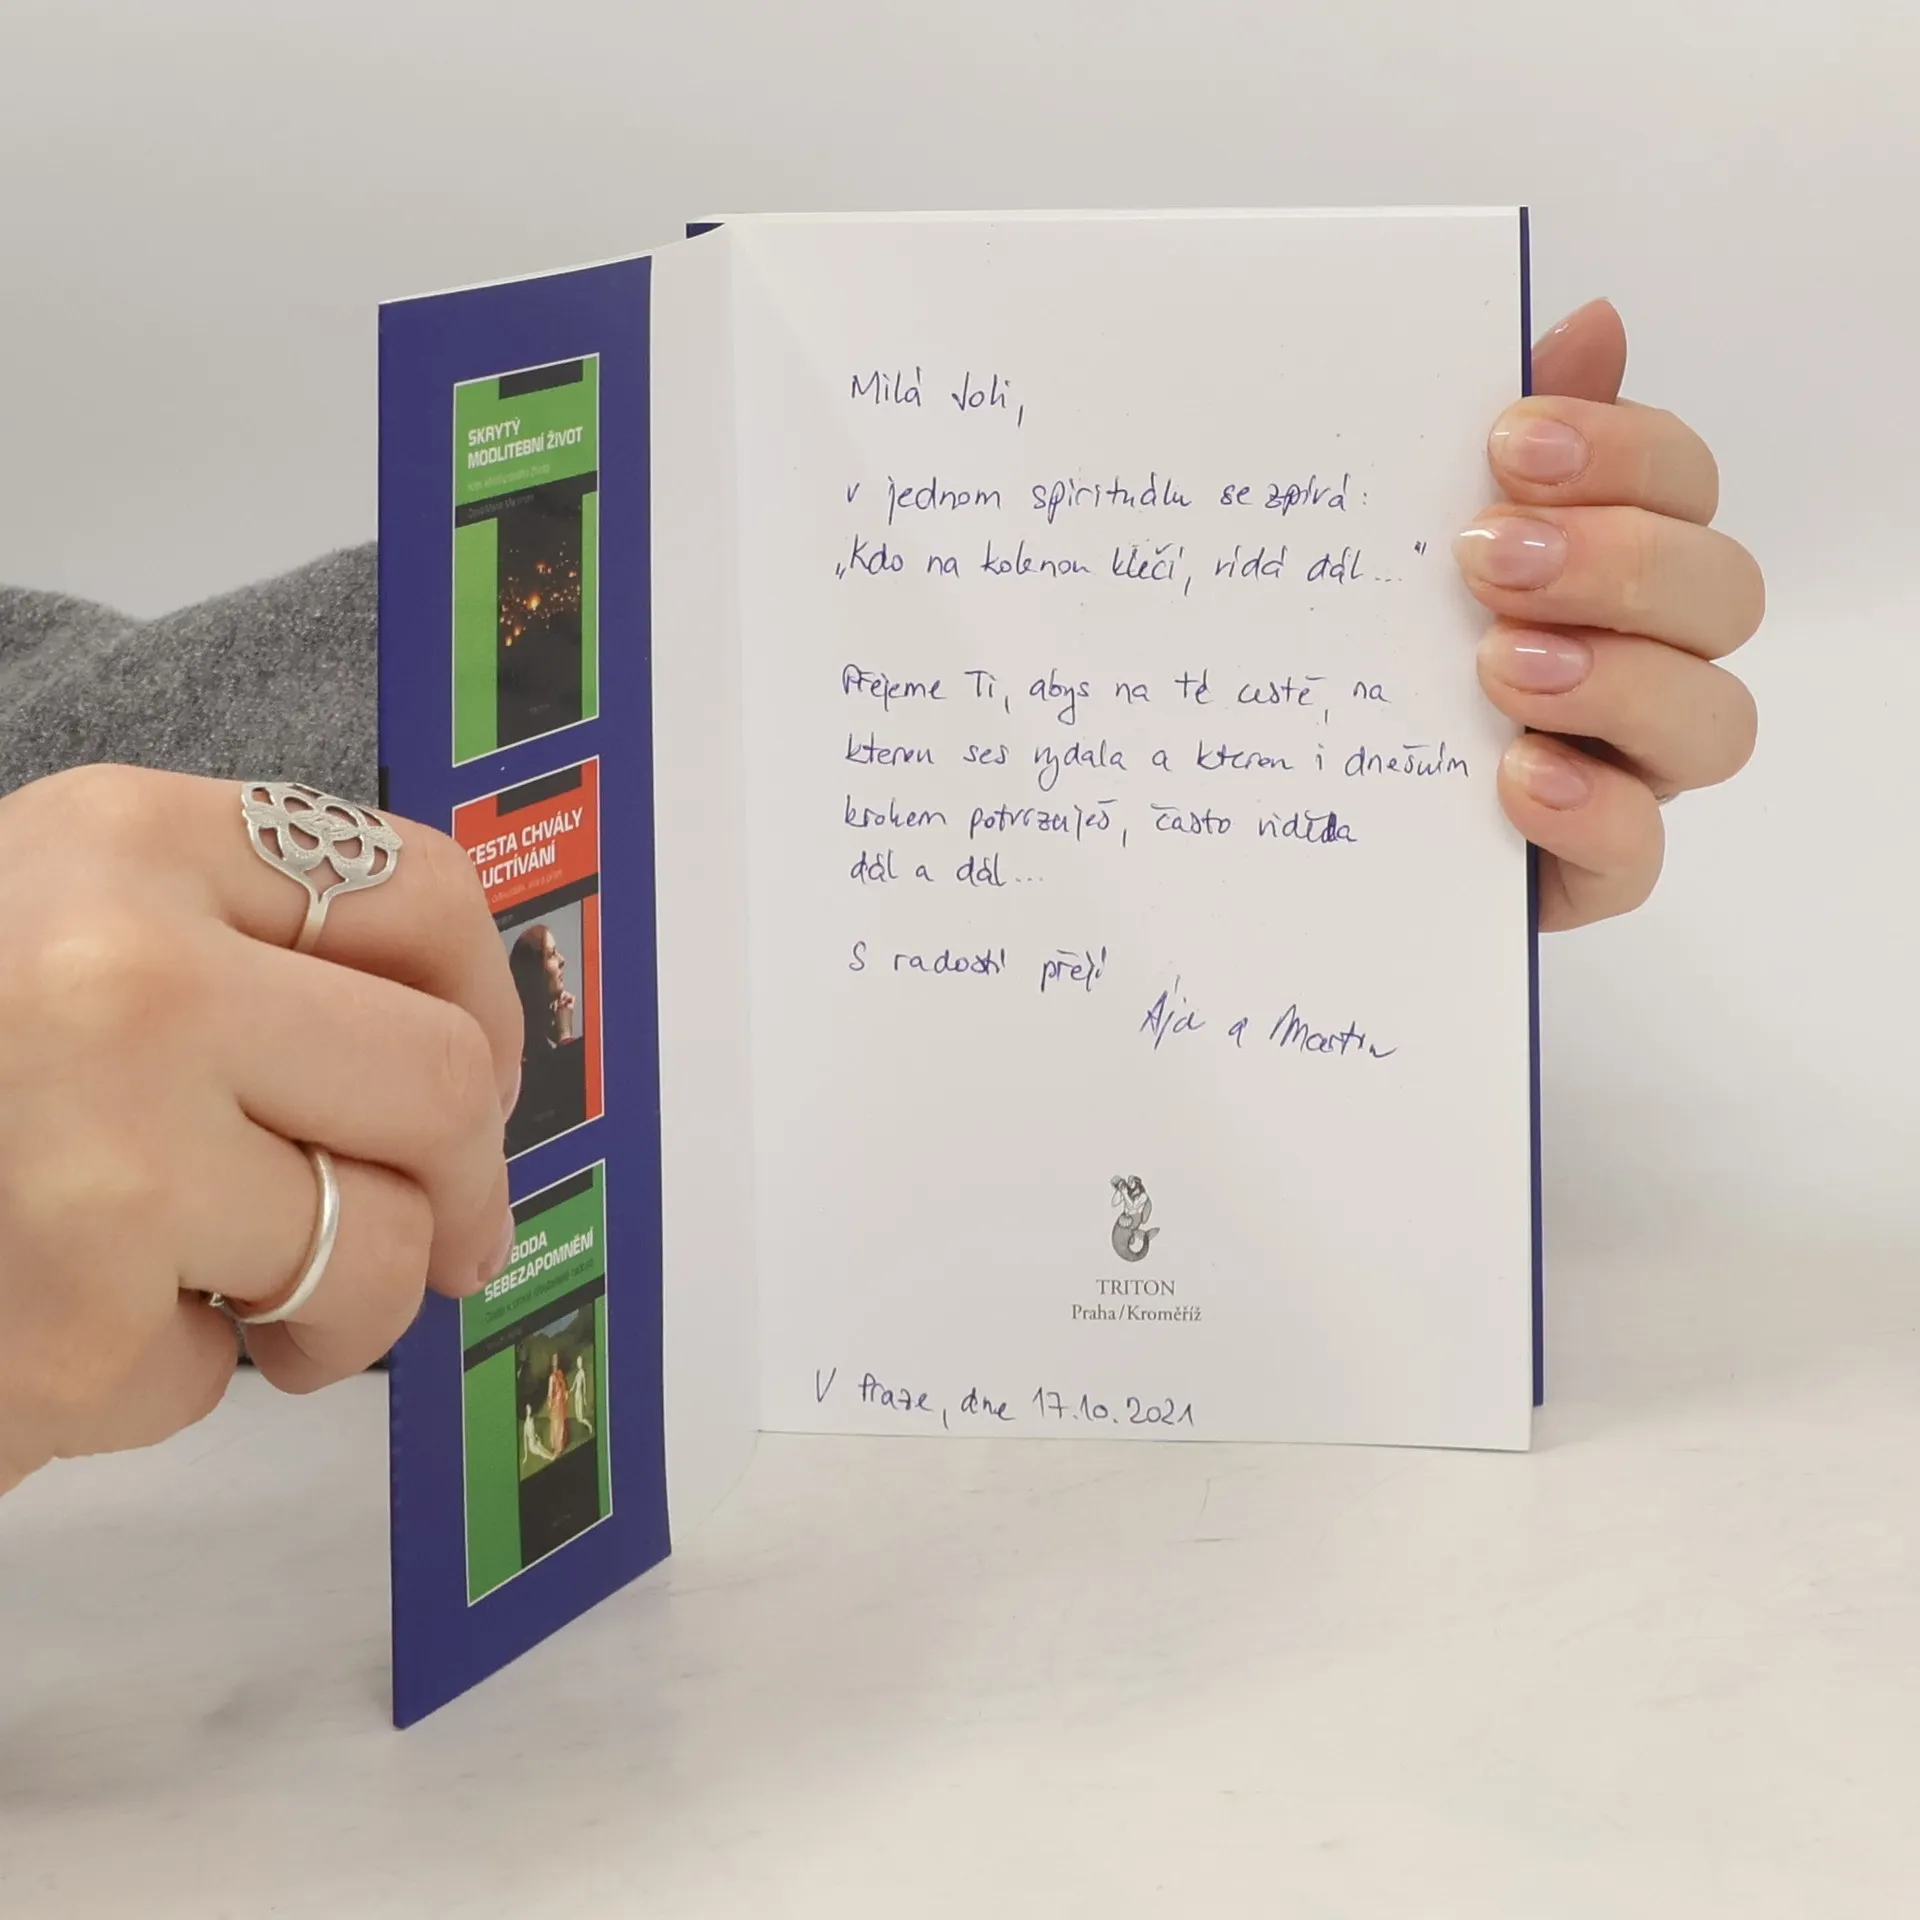 SKRYTÝ
MODLITEBNÍ ŽIVOT
CESTA CHVÁLY
UCTÍVÁNÍ
BODA
SEBEZAPOMNĚNÍ
Milá Joli,
v jednom spirituálu se zpívá:
„Kdo na kolenou klečí, vidá dál..."
Přejeme Ti, abys na té cestě, na
kterou ses vydala a kterou i dnešním
krokem potvrzuješ, často viděla
dál a dál...
S radostí přejí
Ája a Martin
TRITON
Praha/Kroměříž
V Praze, dne 17.10.2021